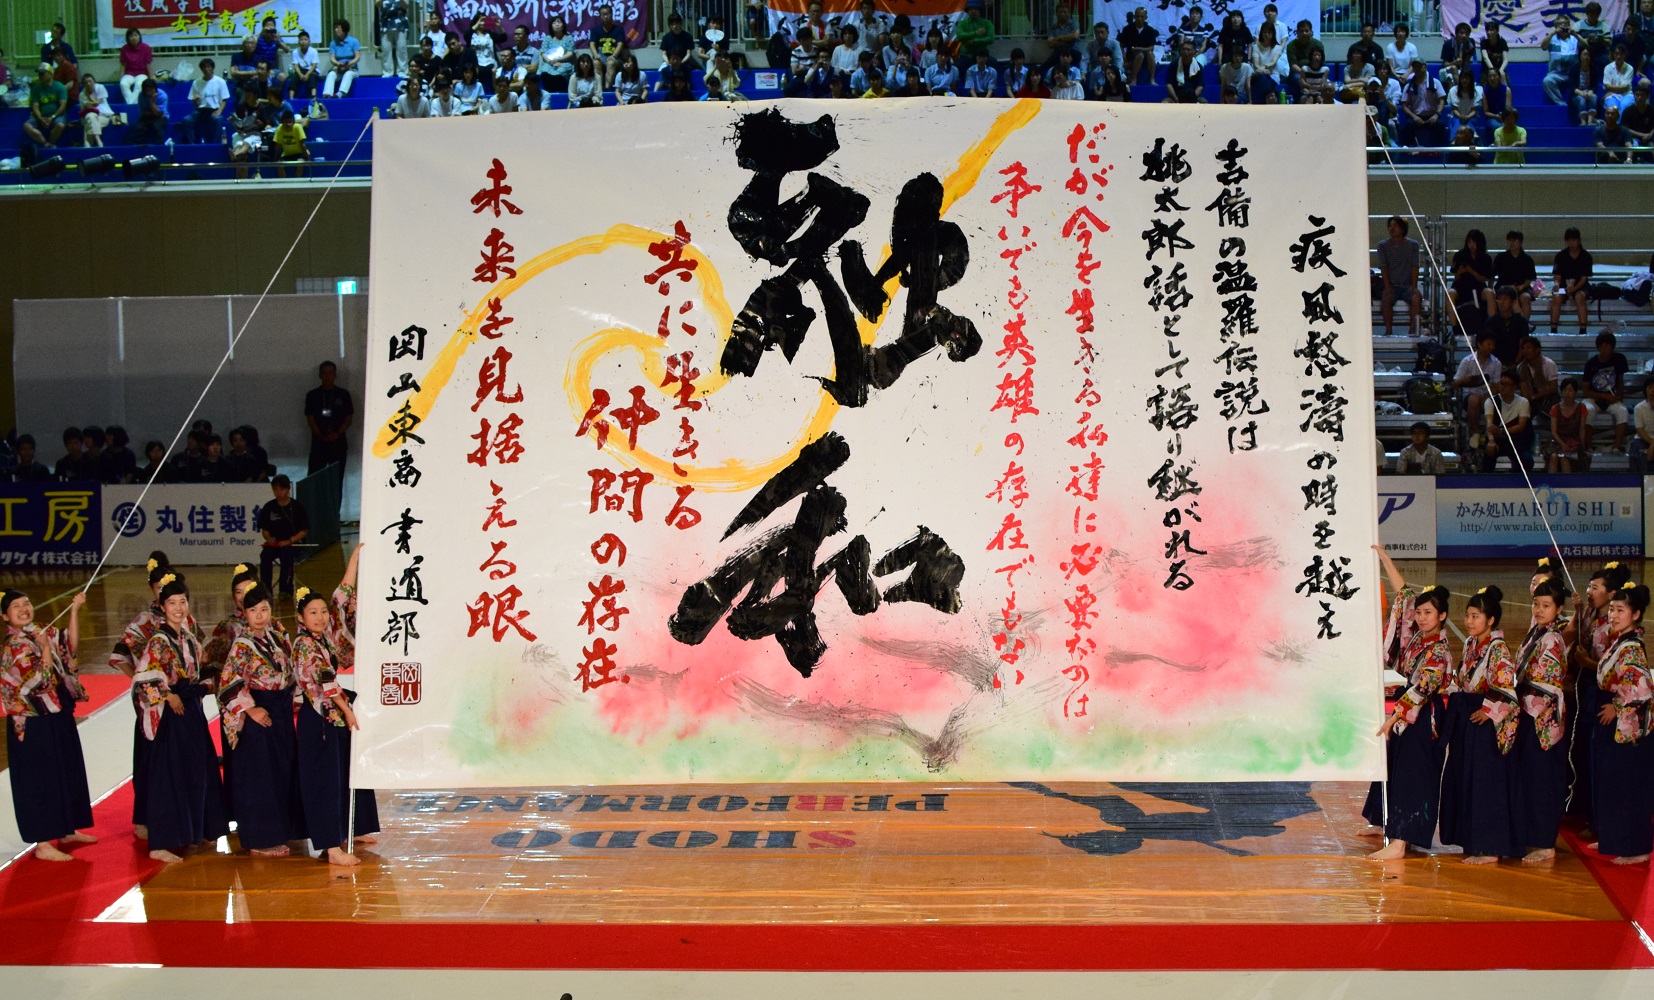 女子高等学校
疾風怒濤の時を越え
吉備の温羅伝説は
桃太郎話として語り継がれる
だが今を生きる私達に必要なのは
争いでも英雄の存在でもない
融和
共に生きる
仲間の存在
未来を見据える眼
岡山東商書道部
岡山
東商
工房
株式会社
丸住製紙
Marusumi Paper
ア
かみ処MARUISHI
http://www.rakuten.co.jp/mpf
丸石製紙株式会社
SHODO
PERFORMANCE